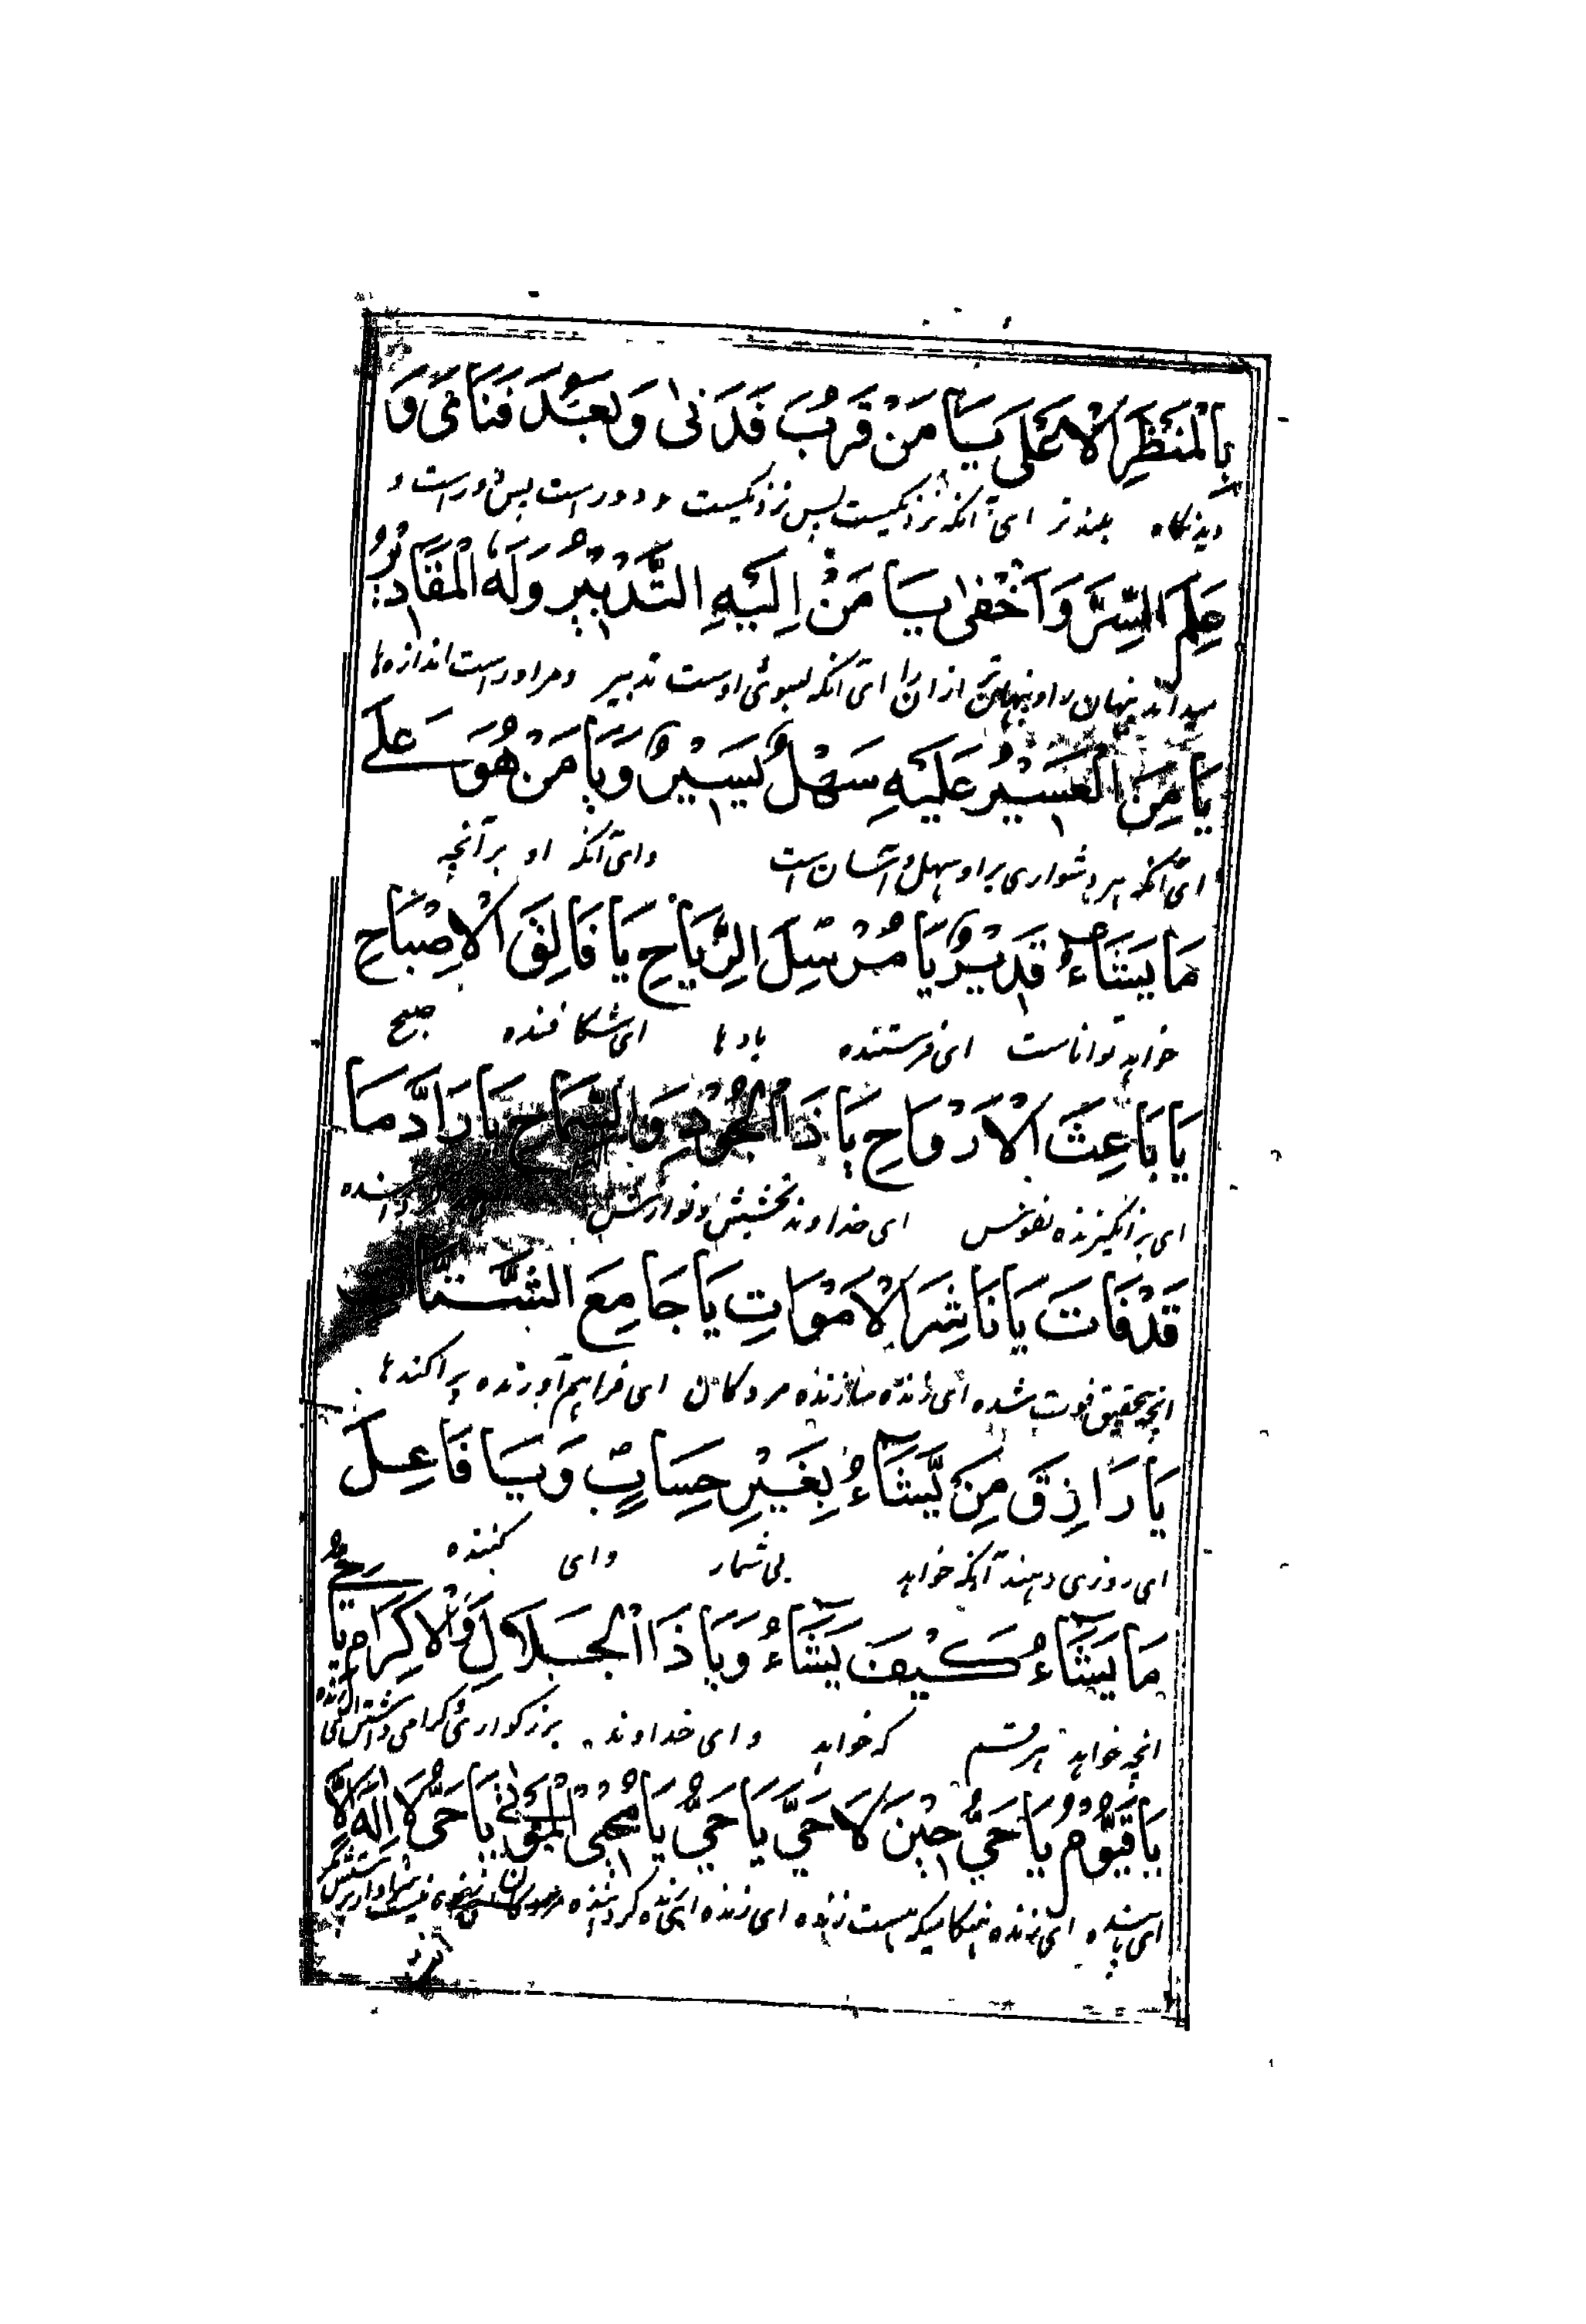 بِالْمَنْظَرِ الْاَعْلٰى يَا مَنْ قَرُبَ فَدَنٰى وَبَعُدَ فَنَاٰى وَ
دیدنگاه بلندتر ای آنکه نزدیکیست پس نزدیکیست و دورست پس دورست و
عَلِمَ السِّرَّ وَاَخْفٰى يَا مَنْ اِلَيْهِ التَّدْبِيْرُ وَلَهُ الْمَقَادِيْرُ
میداند پنهان را و پنهانتر از آن را ای آنکه بسوی اوست تدبیر و مر اوراست اندازه‌ها
يَا مَنِ الْعَسِيْرُ عَلَيْهِ سَهْلٌ يَسِيْرٌ وَيَا مَنْ هُوَ عَلٰے
ای آنکه هر دشواری بر او سهل و آسان است وای آنکه او بر آنچه
مَا يَشَآءُ قَدِيْرٌ يَا مُرْسِلَ الرِّيَاحِ يَا فَالِقَ الْاِصْبَاحِ
خواهد تواناست ای فرستنده بادها ای شکافنده صبح
يَا بَاعِثَ الْاَرْوَاحِ يَا ذَا الْجُوْدِ وَالسَّمَاحِ يَا رَادَّ مَا
ای برانگیزنده نفوس ای خداوند بخشش و نوازش
قَدْ فَاتَ يَا نَاشِرَ الْاَمْوَاتِ يَا جَامِعَ الشَّتَاتِ
انچه بتحقیق فوت شده ای زنده سازنده مردگان ای فراهم آورنده پراکندها
يَا رَازِقَ مَنْ يَّشَآءُ بِغَيْرِ حِسَابٍ وَيَا فَاعِلَ
ای روزی دهنده آنکه خواهد بی شمار وای کننده
مَا يَشَآءُ كَيْفَ يَشَآءُ وَيَا ذَا الْجَلَالِ وَالْاِكْرَامِ يَا حَيُّ
انچه خواهد هر قسم که خواهد و ای خداوند بزرگواری و گرامی داشتن ای زنده
يَا قَيُّوْمُ يَا حَيُّ حِيْنَ لَا حَيَّ يَا حَيُّ يَا مُحْيِىَ الْمَوْتٰى يَا حَيُّ لَا اِلٰهَ اِلَّا
ای پاینده ای زنده هنگامیکه نیست زنده ای زنده ای زنده گرداننده مردگان ای زنده نیست سزاوار پرستش